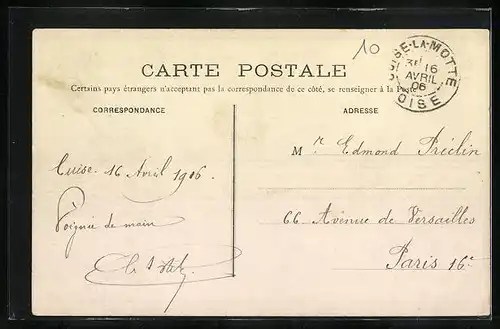 10
CUISE-LA-MOTTE
16
AVRIL
06
OISE
CARTE POSTALE
Certains pays étrangers n'acceptant pas la correspondance de ce côté, se renseigner à la Poste
CORRESPONDANCE
ADRESSE
Mr. Edmond Préclin
Cuise. 16 Avril 1906.
66 Avenue de Versailles
Poignée de main
Paris 16e